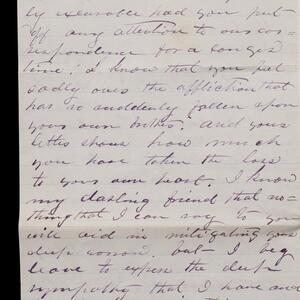 ly excusable had you put
off any attention to our cor-
respondence for a longer
time! I know that you feel
sadly over the affliction that
has so suddenly fallen upon
your own and your
letter shows how much
you have taken the loss
to your own heart. I know
my darling friend that no-
thing that I can say to you
will aid in mitigating your
deep sorrow. but I beg
leave to express the deep
sympathy that I have and